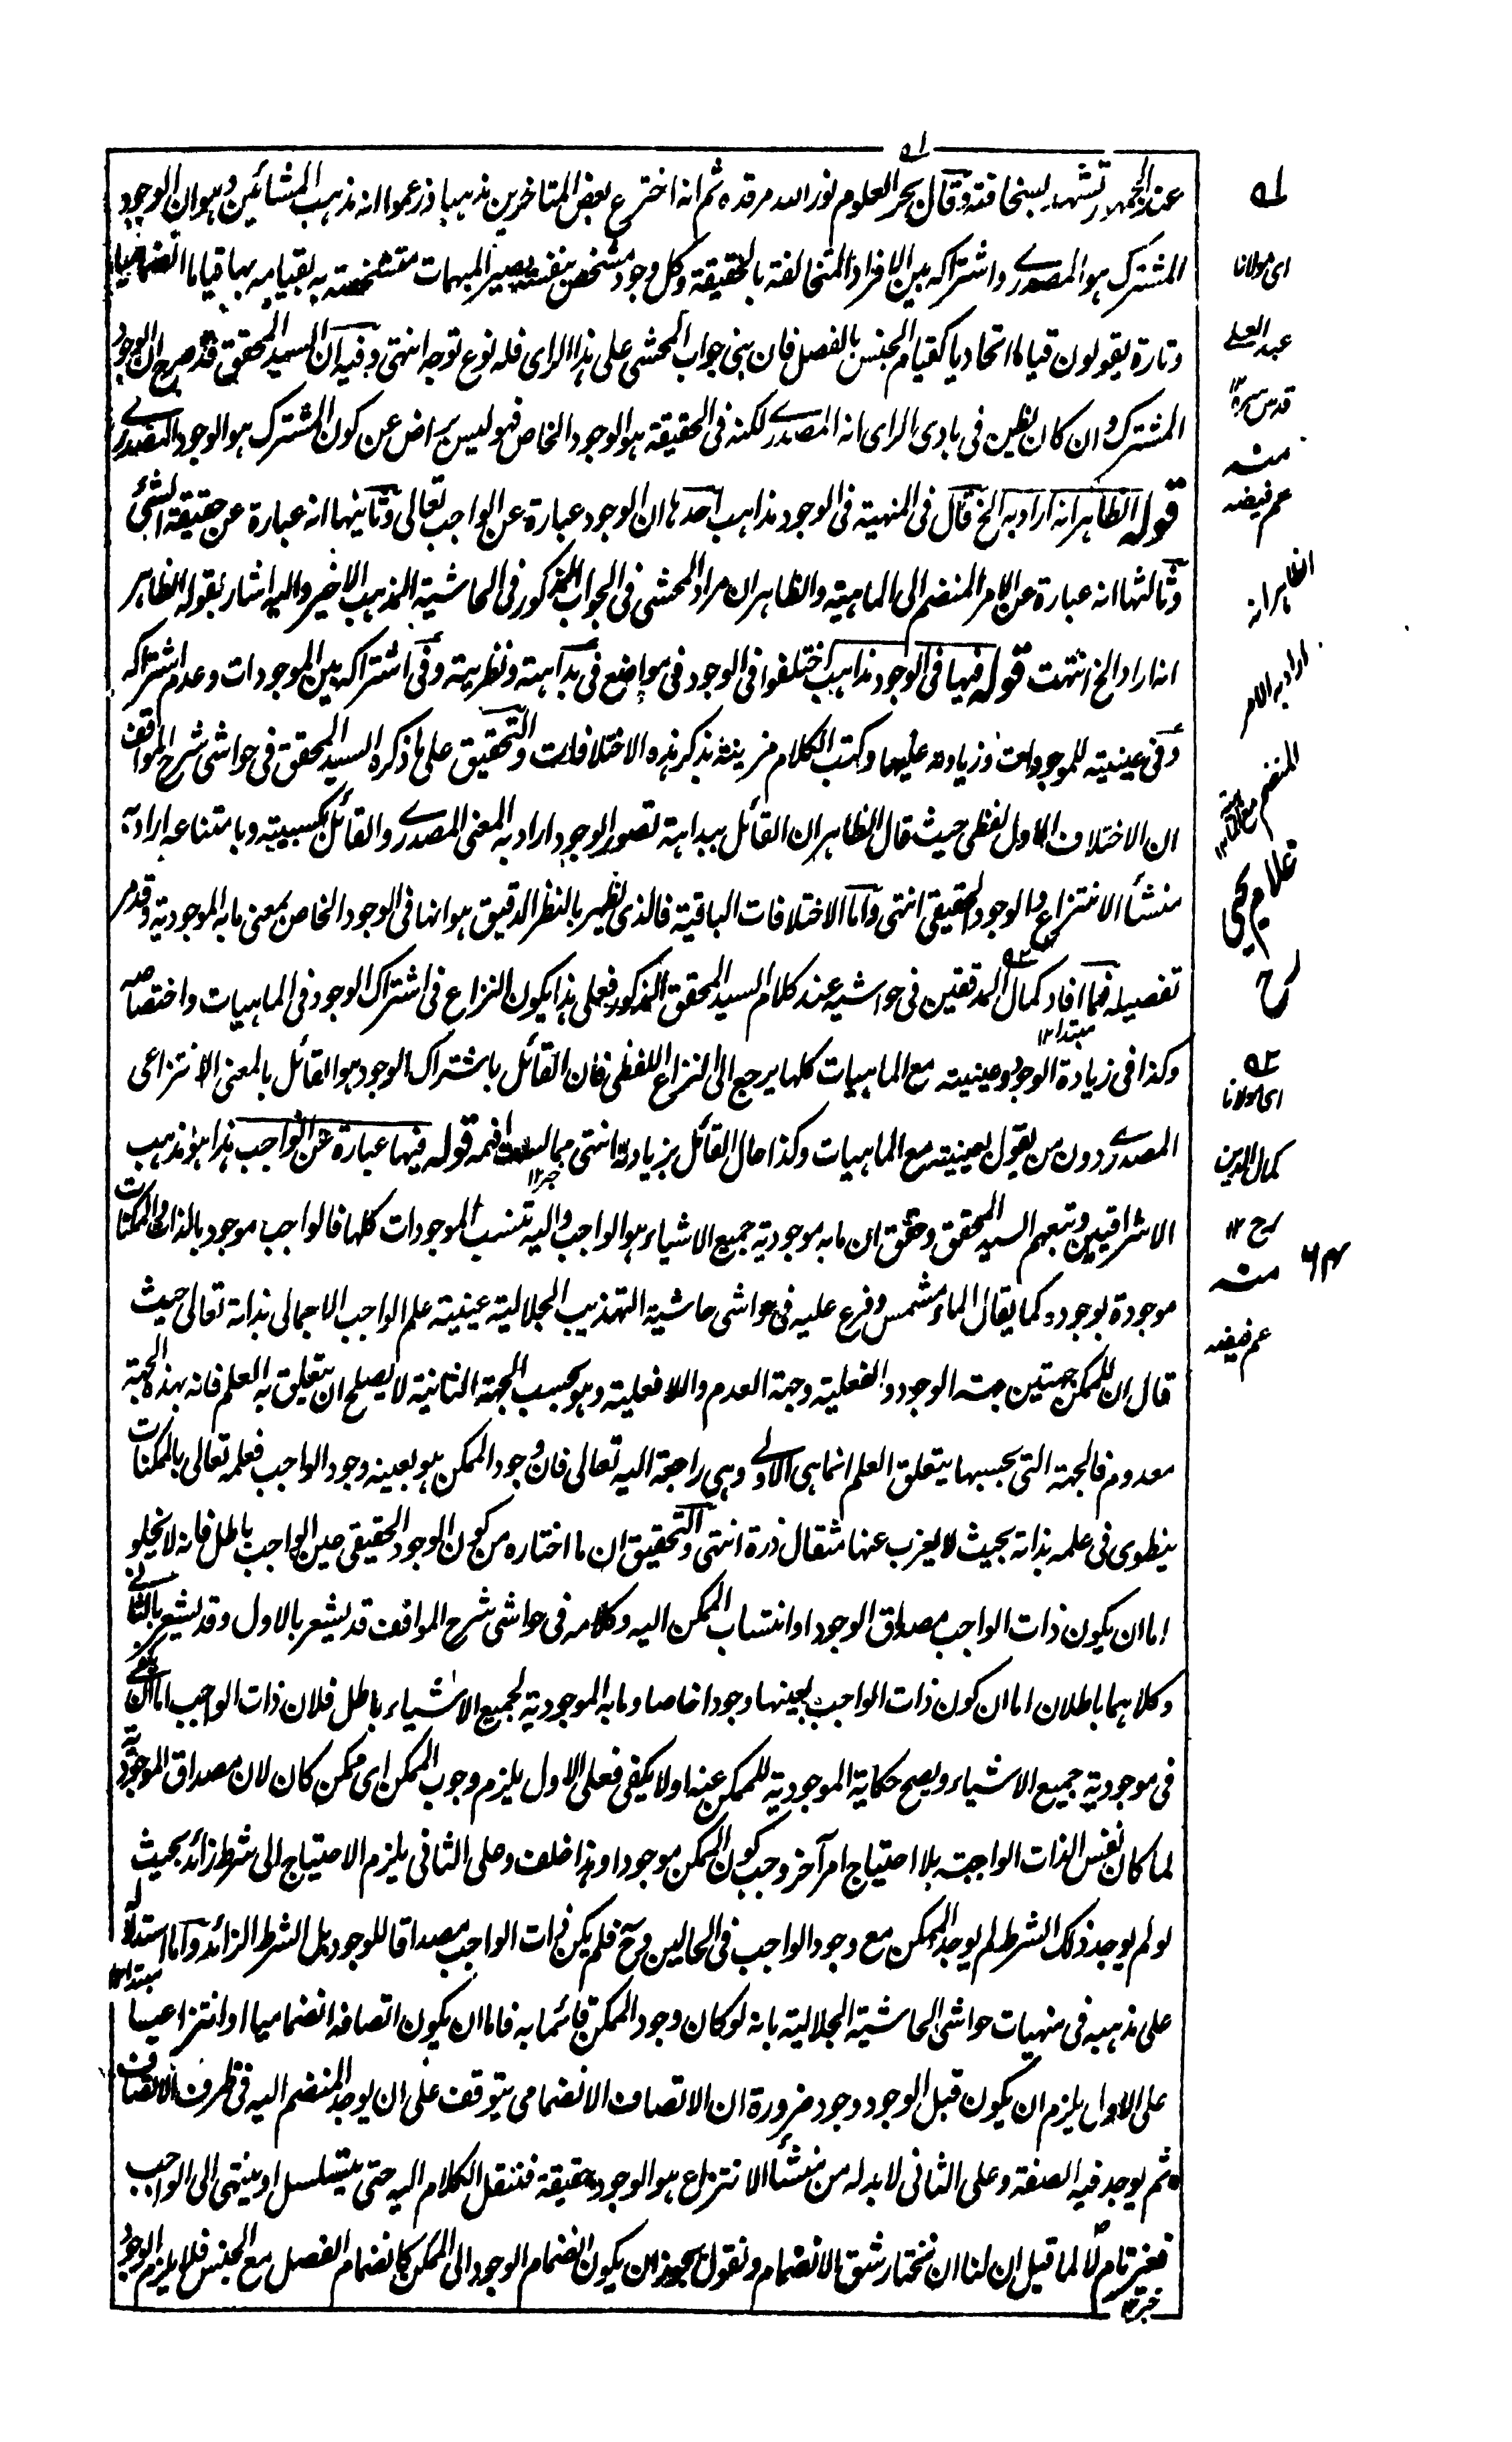 عند الجمهور تشهد بسخافته وقال بحر العلوم نور الله مرقده ثم انه اخترع بعض المتاخرين مذهبا وزعموا انه مذهب المشائين وهو ان الوجود
المشترك هو المصدري واشتراكه بين الافراد المتخالفة بالحقيقة وكل وجود متشخص بنفسه يصير المبهمات متشخصة به بقيامه بها قياما انضماميا
وتارة يقولون قياما اتحاديا كقيام الجنس بالفصل فان بنى جواب المحشى على هذا الراى فله نوع توجه انتهى وفيه ان السيد المحقق قد صرح ان الوجود
المشترك وان كان يظن فى بادى الراى انه المصدري لكنه فى الحقيقة هو الوجود الخاص فهو ليس براض عن كون المشترك هو الوجود المصدري
قوله الظاهر انه اراد به الخ قال فى المنهية فى الوجود مذاهب احدها ان الوجود عبارة عن الواجب تعالى وثانيها انه عبارة عن حقيقة الشئ
وثالثها انه عبارة عن الامر المنضم الى الماهية والظاهر ان مراد المحشى فى الجواب المذكور فى الحاشية المذهب الاخير واليه اشار بقوله الظاهر
انه اراد الخ انتهت قوله فيها فى الوجود مذاهب اختلفوا فى الوجود فى مواضع فى بداهته ونظريته وفى اشتراكه بين الموجودات وعدم اشتراكه
وفى عينيته للموجودات وزيادته عليها وكتب الكلام مزينة بذكر هذه الاختلافات والتحقيق على ما ذكره السيد المحقق فى حواشى شرح المواقف
ان الاختلاف الاول لفظى حيث قال الظاهر ان القائل ببداهة تصور الوجود اراد به المعنى المصدري والقائل بكسبيته وبامتناعه اراد به
منشأ الانتزاع والوجود الحقيقى انتهى واما الاختلافات الباقية فالذى يظهر بالنظر الدقيق هو انها فى الوجود الخاص بمعنى ما به الموجودية وقد مر
تفصيله فما افاد كمال المدققين فى حواشيه عند كلام السيد المحقق المذكور فعلى هذا يكون النزاع فى اشتراك الوجود فى الماهيات واختصاصه
وكذا فى زيادة الوجود وعينيته مع الماهيات كلها يرجع الى النزاع اللفظى فان القائل باشتراك الوجود هو القائل بالمعنى الانتزاعى
المصدري دون من يقول بعينيته مع الماهيات وكذا حال القائل بزيادته انتهى مما لست افهمه قوله فيها عبارة عن الواجب هذا هو مذهب
الاشراقيين وتبعهم السيد المحقق وحقق ان ما به موجودية جميع الاشياء هو الواجب واليه تنتسب الموجودات كلها فالواجب موجود بالذات والممكنات
موجودة بوجوده كما يقال الماء مشمس وفرع عليه فى حواشى حاشية التهذيب الجلالية عينية علم الواجب الاجمالى بذاته تعالى حيث
قال ان للممكن جهتين جهة الوجود والفعلية وجهة العدم واللافعلية وهو بحسب الجهة الثانية لا يصلح ان يتعلق به العلم فانه بهذه الجهة
معدوم فالجهة التى بحسبها يتعلق العلم انما هى الاولى وهى راجعة اليه تعالى فان وجود الممكن هو بعينه وجود الواجب فعلمه تعالى بالممكنات
ينطوى فى علمه بذاته بحيث لا يعزب عنها مثقال ذرة انتهى والتحقيق ان ما اختاره من كون الوجود الحقيقى عين الواجب باطل فانه لا يخلو
اما ان يكون ذات الواجب مصداق الوجود او انتساب الممكن اليه وكلامه فى حواشى شرح المواقف قد يشعر بالاول وقد يشعر بالثانى
وكلاهما باطلان اما ان كون ذات الواجب بعينها وجودا خاصا وما به الموجودية لجميع الاشياء باطل فلان ذات الواجب اما ان يكفى
فى موجودية جميع الاشياء ويصح حكاية الموجودية للممكن عنه او لا يكفى فعلى الاول يلزم وجوب الممكن اى ممكن كان لان مصداق الموجودية
لما كان نفس الذات الواجبة بلا احتياج امر آخر وجب كون الممكن موجودا وهذا خلف وعلى الثانى يلزم الاحتياج الى شرط زائد بحيث
لو لم يوجد ذلك الشرط لم يوجد الممكن مع وجود الواجب فى الحالين وح فلم يكن ذات الواجب مصداقا للوجود بل الشرط الزائد واما استدلاله
على مذهبه فى منهيات حواشى الحاشية الجلالية بانه لو كان وجود الممكن قائما به فاما ان يكون اتصافه انضماميا او انتزاعيا
على الاول يلزم ان يكون قبل الوجود وجود ضرورة ان الاتصاف الانضمامى يتوقف على ان يوجد المنضم اليه فى ظرف الاتصاف
ثم يوجد فيه الصفة وعلى الثانى لا بد له من منشأ الانتزاع هو الوجود حقيقة فننقل الكلام اليه حتى يتسلسل او ينتهى الى الواجب
فغير تام لا لما قيل ان لنا ان نختار شق الانضمام ونقول يجوز ان يكون انضمام الوجود الى الممكن كانضمام الفصل مع الجنس فلا يلزم الوجود
مبتدا ١٢
خبر ١٢
مبتدا ١٢
خبر ١٢
اى مولانا
عبد العلى
قدس سره ١٢
منه
عم فيضه
الظاهر انه
اراد به الامر
المنضم
غلام يحيى
رح
اى مولانا
كمال الدين
رح ١٢
منه
عم فيضه